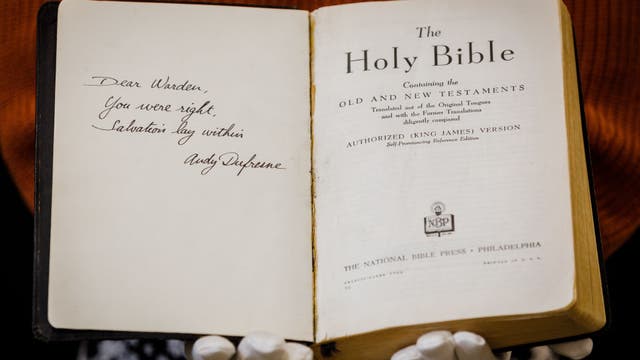 Dear Warden,
You were right,
Salvation lay within
Andy Dufresne
The
Holy Bible
Containing the
OLD AND NEW TESTAMENTS
Translated out of the Original Tongues
and with the Former Translations
diligently compared
AUTHORIZED (KING JAMES) VERSION
Self-Pronouncing Reference Edition
NBP
THE NATIONAL BIBLE PRESS • PHILADELPHIA
PRINTED IN U.S.A.